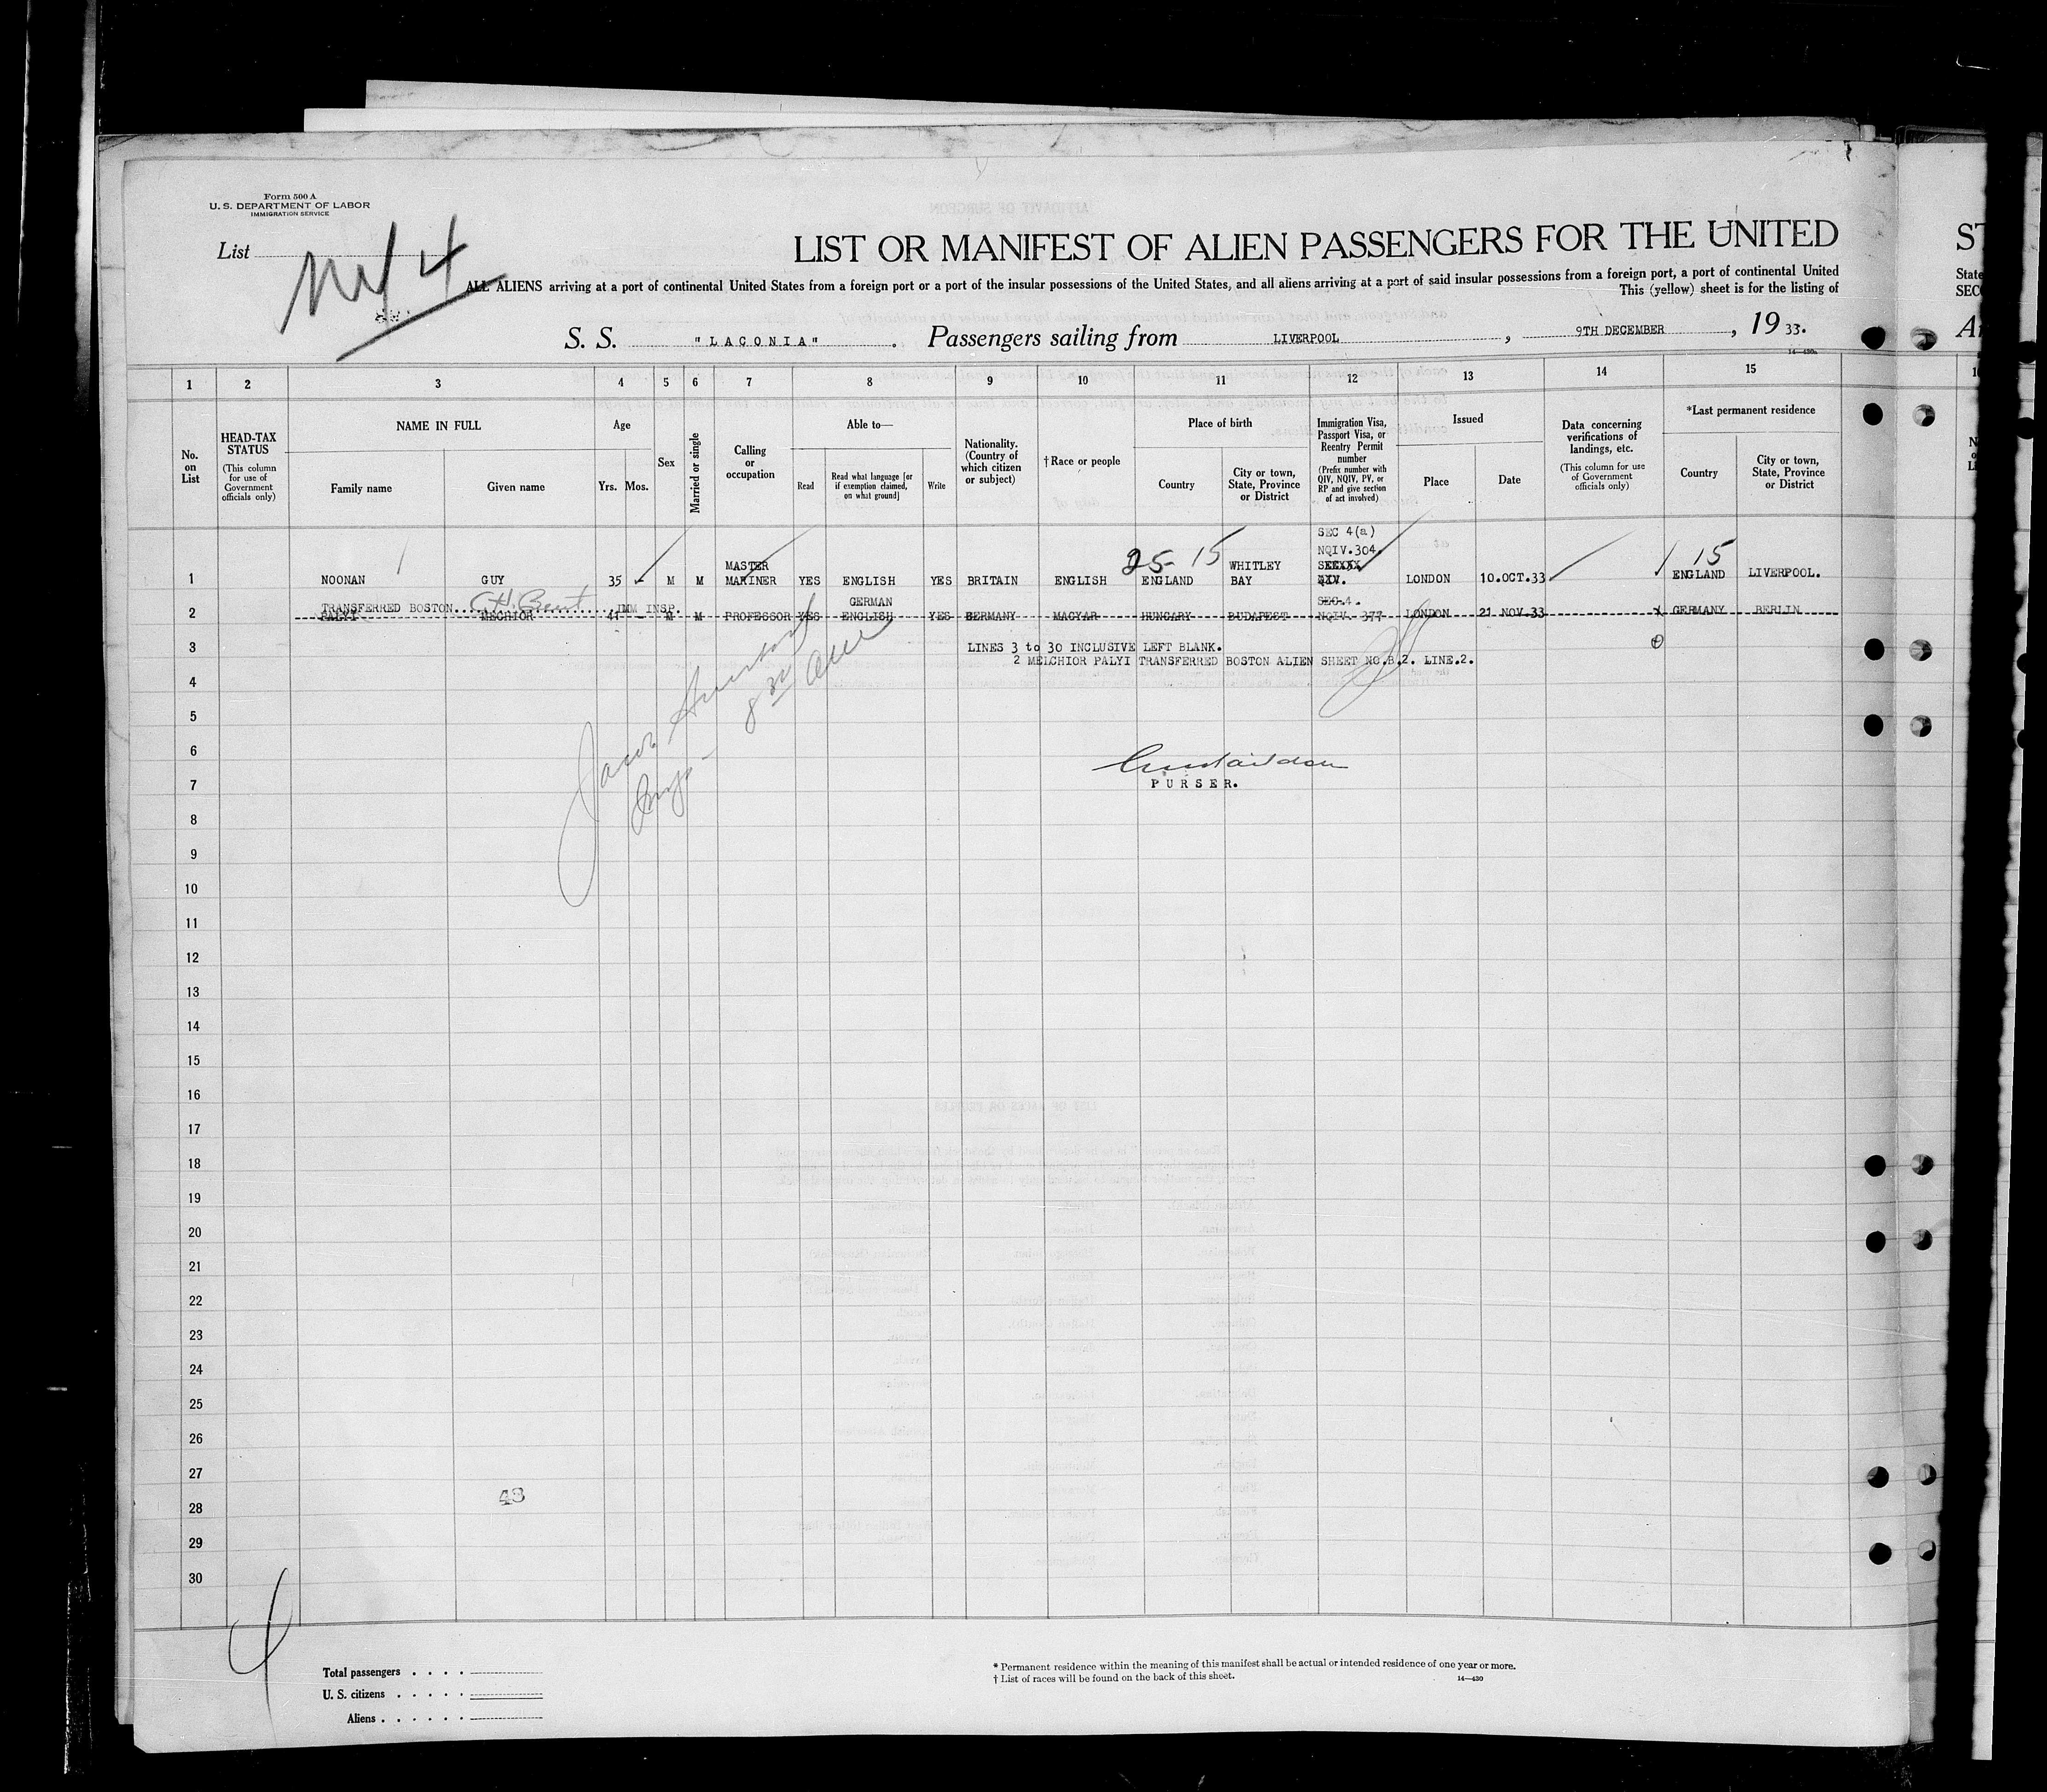 Form 500 A
U. S. DEPARTMENT OF LABOR
IMMIGRATION SERVICE
List
4
LIST OR MANIFEST OF ALIEN PASSENGERS FOR THE UNITED
ALL ALIENS arriving at a port of continental United States from a foreign port or a port of the insular possessions of the United States, and all aliens arriving at a port of said insular possessions from a foreign port, a port of continental United
This (yellow) sheet is for the listing of
S. S. "LACONIA" . Passengers sailing from LIVERPOOL , 9TH DECEMBER , 19 33.
14—430a
1 2 3 4 5 6 7 8 9 10 11 12 13 14 15
No. on List
HEAD-TAX STATUS
(This column for use of Government officials only)
NAME IN FULL
Family name
Given name
Age
Yrs. Mos.
Sex
Married or single
Calling or occupation
Able to—
Read
Read what language [or if exemption claimed, on what ground]
Write
Nationality. (Country of which citizen or subject)
† Race or people
Place of birth
Country
City or town, State, Province or District
Immigration Visa, Passport Visa, or Reentry Permit number
(Prefix number with QIV, NQIV, PV, or RP and give section of act involved)
Issued
Place
Date
Data concerning verifications of landings, etc.
(This column for use of Government officials only)
*Last permanent residence
Country
City or town, State, Province or District
SEC 4(a)
25-15 NQIV.304. 15
1 NOONAN GUY 35 - M M MASTER MARINER YES ENGLISH YES BRITAIN ENGLISH ENGLAND WHITLEY BAY LONDON 10.OCT.33 ENGLAND LIVERPOOL.
TRANSFERRED BOSTON IMM INSP.
2 PALYI MECHIOR 41 - M M PROFESSOR YES GERMAN ENGLISH YES GERMANY MAGYAR HUNGARY BUDAPEST SEC.4. NQIV. 377 LONDON 21 NOV.33 GERMANY BERLIN
3 LINES 3 to 30 INCLUSIVE LEFT BLANK.
2 MELCHIOR PALYI TRANSFERRED BOSTON ALIEN SHEET NO.B.2. LINE.2.
4
5
6
PURSER.
7
8
9
10
11
12
13
14
15
16
17
18
19
20
21
22
23
24
25
26
27
48
28
29
30
Total passengers . . . .
U. S. citizens . . . . .
Aliens . . . . . .
* Permanent residence within the meaning of this manifest shall be actual or intended residence of one year or more.
† List of races will be found on the back of this sheet.
14—430